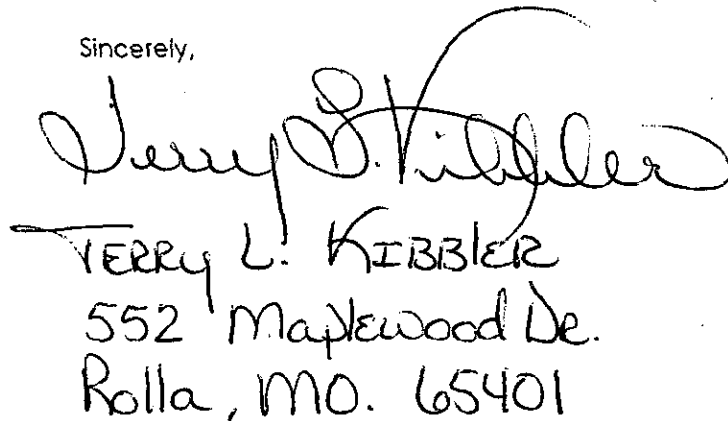 Sincerely,
Terry L. Kibbler
TERRY L. KIBBLER
552 Maplewood DR.
Rolla, MO. 65401